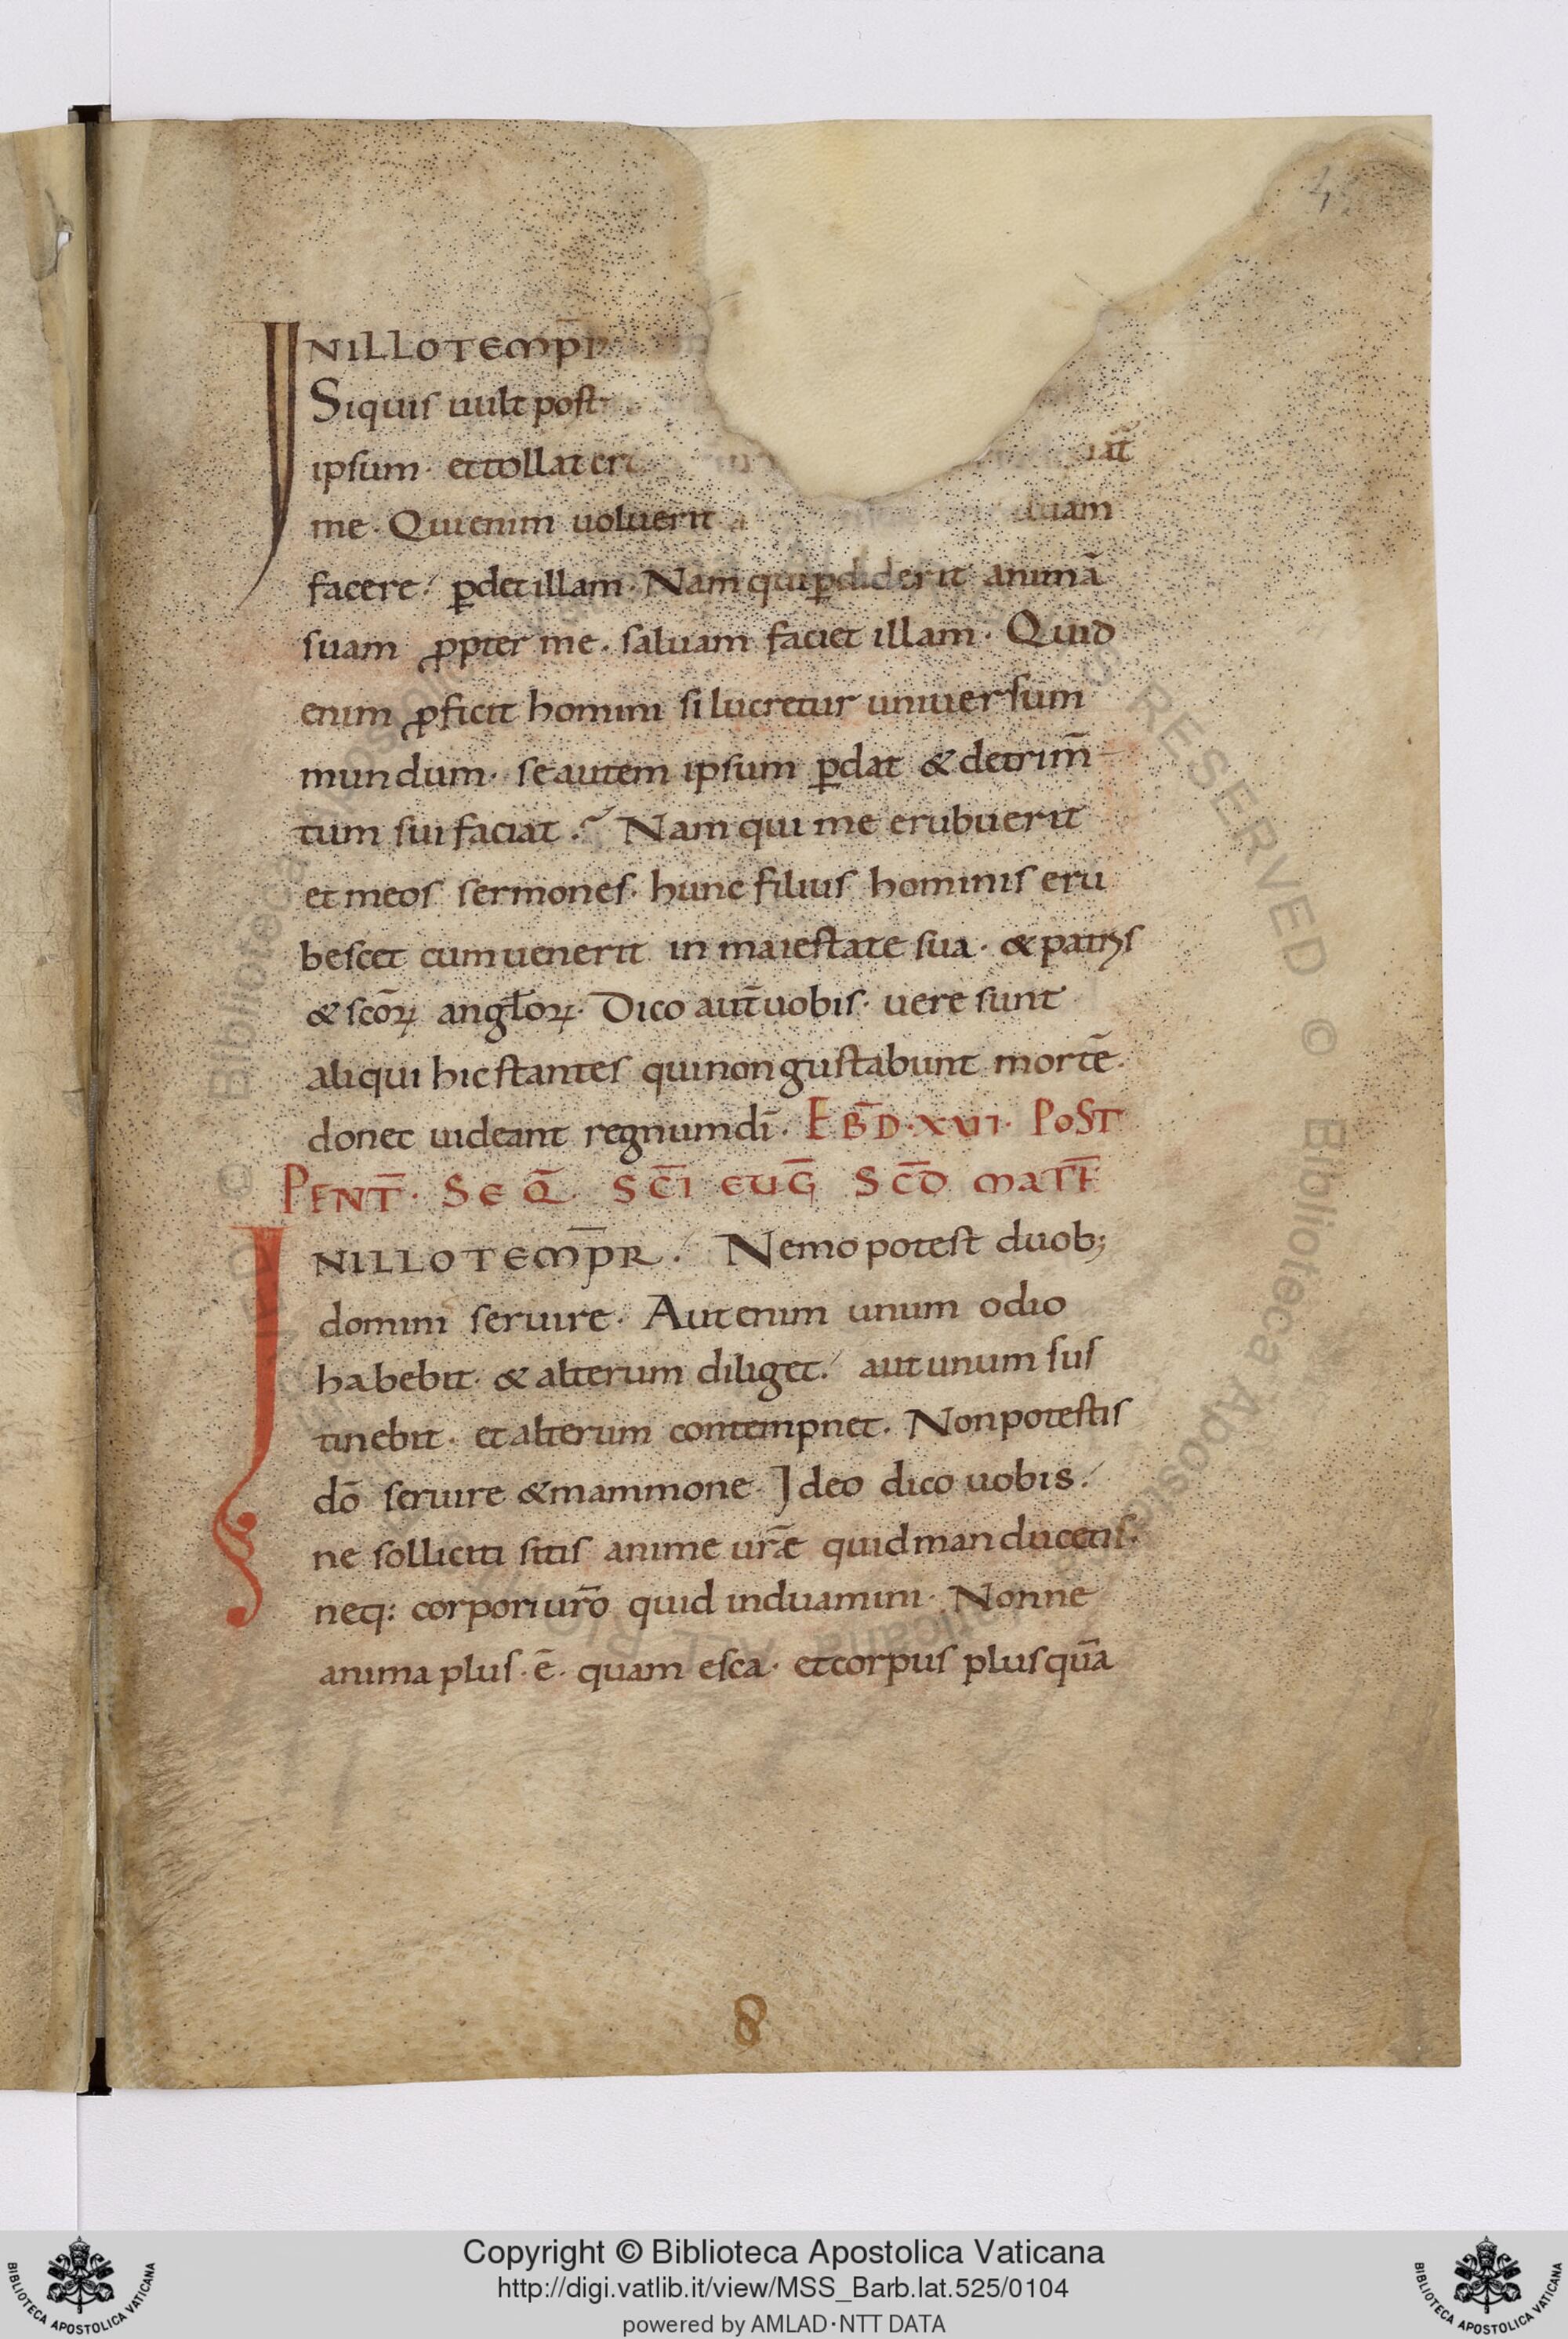 IN ILLO TEMP̄R
Siquis uult post
ipsum · et tollat
me · Qui enim uoluerit suam
facere · ꝑdet illam · Nam qui ꝑdiderit animā
suam ꝓpter me · saluam faciet illam · Quid
enim ꝓficit homini si lucretur uniuersum
mundum · se autem ipsum ꝑdat & detrim̄
tum sui faciat · Nam qui me erubuerit
et meos sermones · hunc filius hominis eru
bescet cum uenerit in maiestate sua · & patris
& scōꝝ angl̄oꝝ · Dico aut̄ uobis · uere sunt
aliqui hic stantes qui non gustabunt mortē ·
donec uideant regnum dī · EB̄D · XVII · POST
PENT̄ · SEQ̄ · SC̄I EUḠ SC̄D MATH̄
IN ILLO TEMP̄R · Nemo potest duob;
domini seruire · Aut enim unum odio
habebit · & alterum diliget · aut unum sus
tinebit · et alterum contempnet · Non potestis
dō seruire & mammone · Ideo dico uobis ·
ne solliciti sitis anime ur̄æ quid manducetis ·
neq: corpori ur̄o quid induamini · Nonne
anima plus · ē · quam esca · et corpus plus quā
8
Copyright © Biblioteca Apostolica Vaticana
http://digi.vatlib.it/view/MSS_Barb.lat.525/0104
powered by AMLAD·NTT DATA
BIBLIOTECA APOSTOLICA VATICANA
BIBLIOTECA APOSTOLICA VATICANA